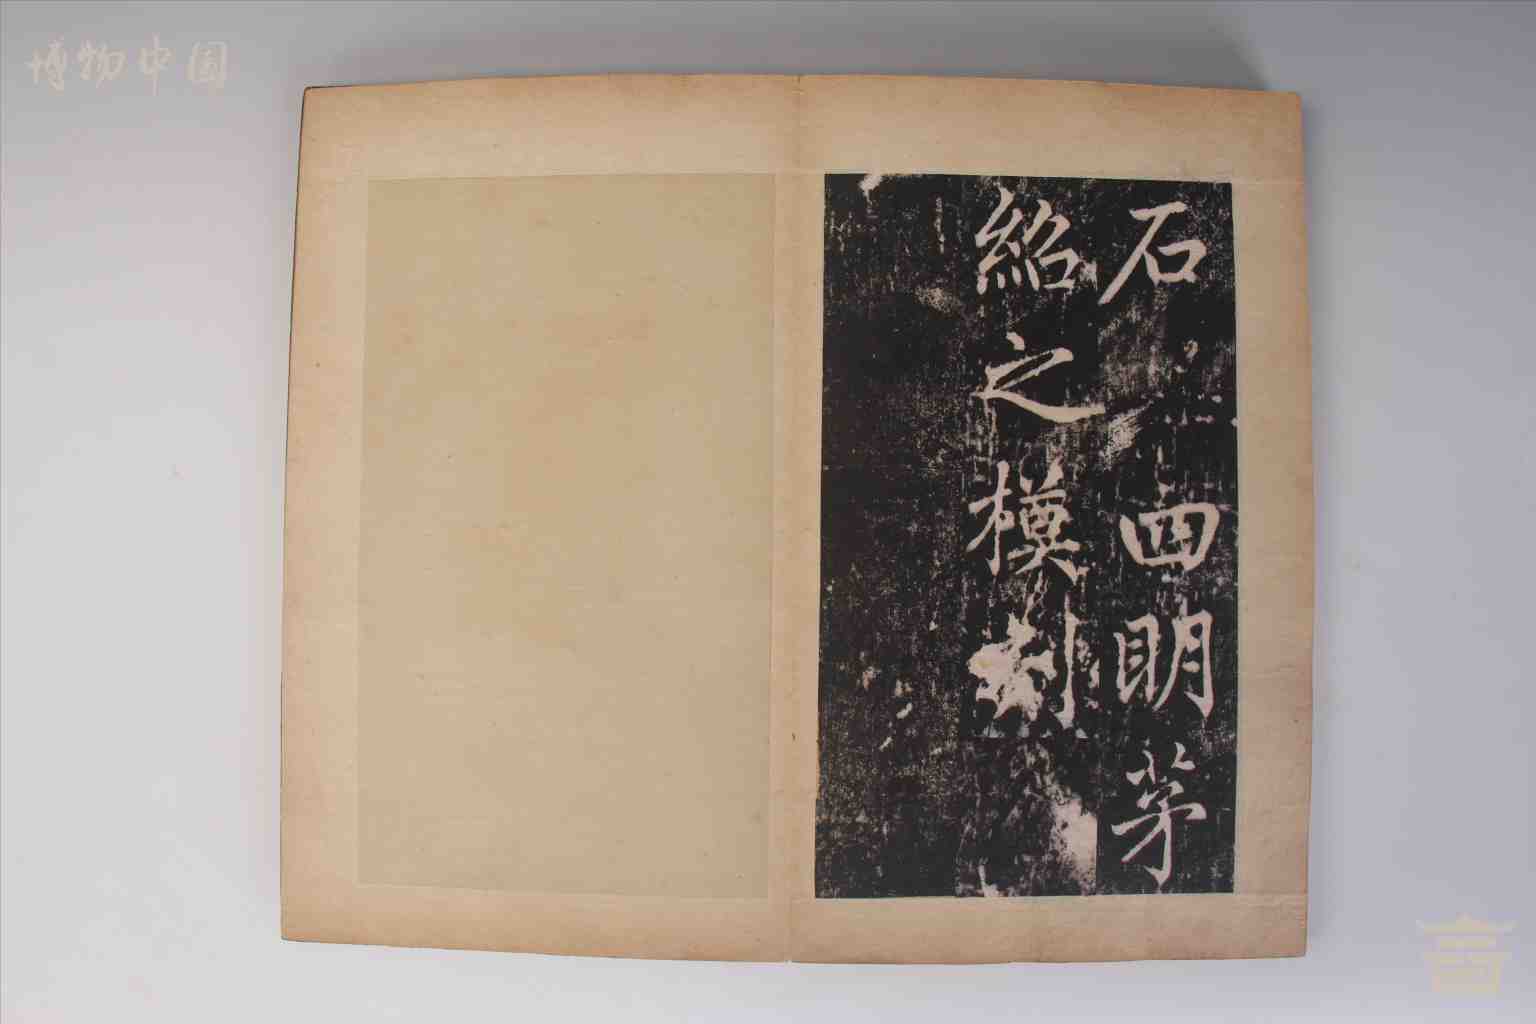 石四明茅
紹之模刻
博物中国